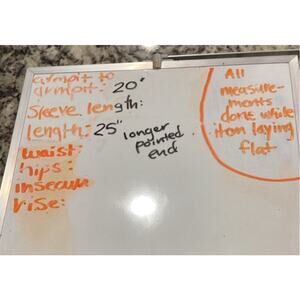 armpit to
armpit: 20"
Sleeve length:
length: 25" longer
pointed
end
waist:
hips:
inseam
rise:
All
measure-
ments
done while
item laying
flat